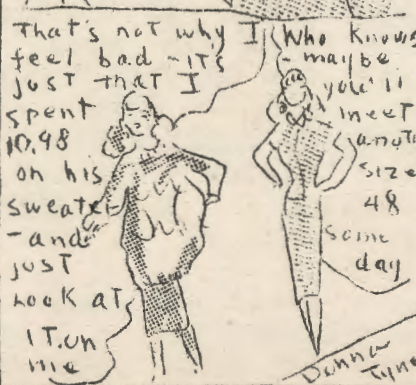 That's not why I
feel bad - it's
just that I
spent
10.98
on his
sweater
- and
just
look at
IT. on
me
Who knows
- maybe
you'll
meet
anoth
size
48
some
day
Donna
Tyne